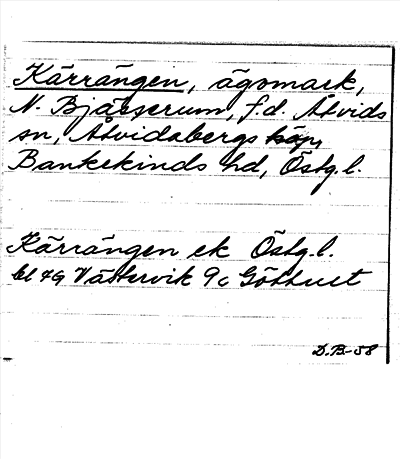 Kärrängen, ägomark,
N. Bjärserum, f.d. Åtvids
sn, Åtvidabergs köp,
Bankekinds hd, Östg.l.
Kärrängen ek Östg.l.
bl 49 Vättervik 9c
D.B-58